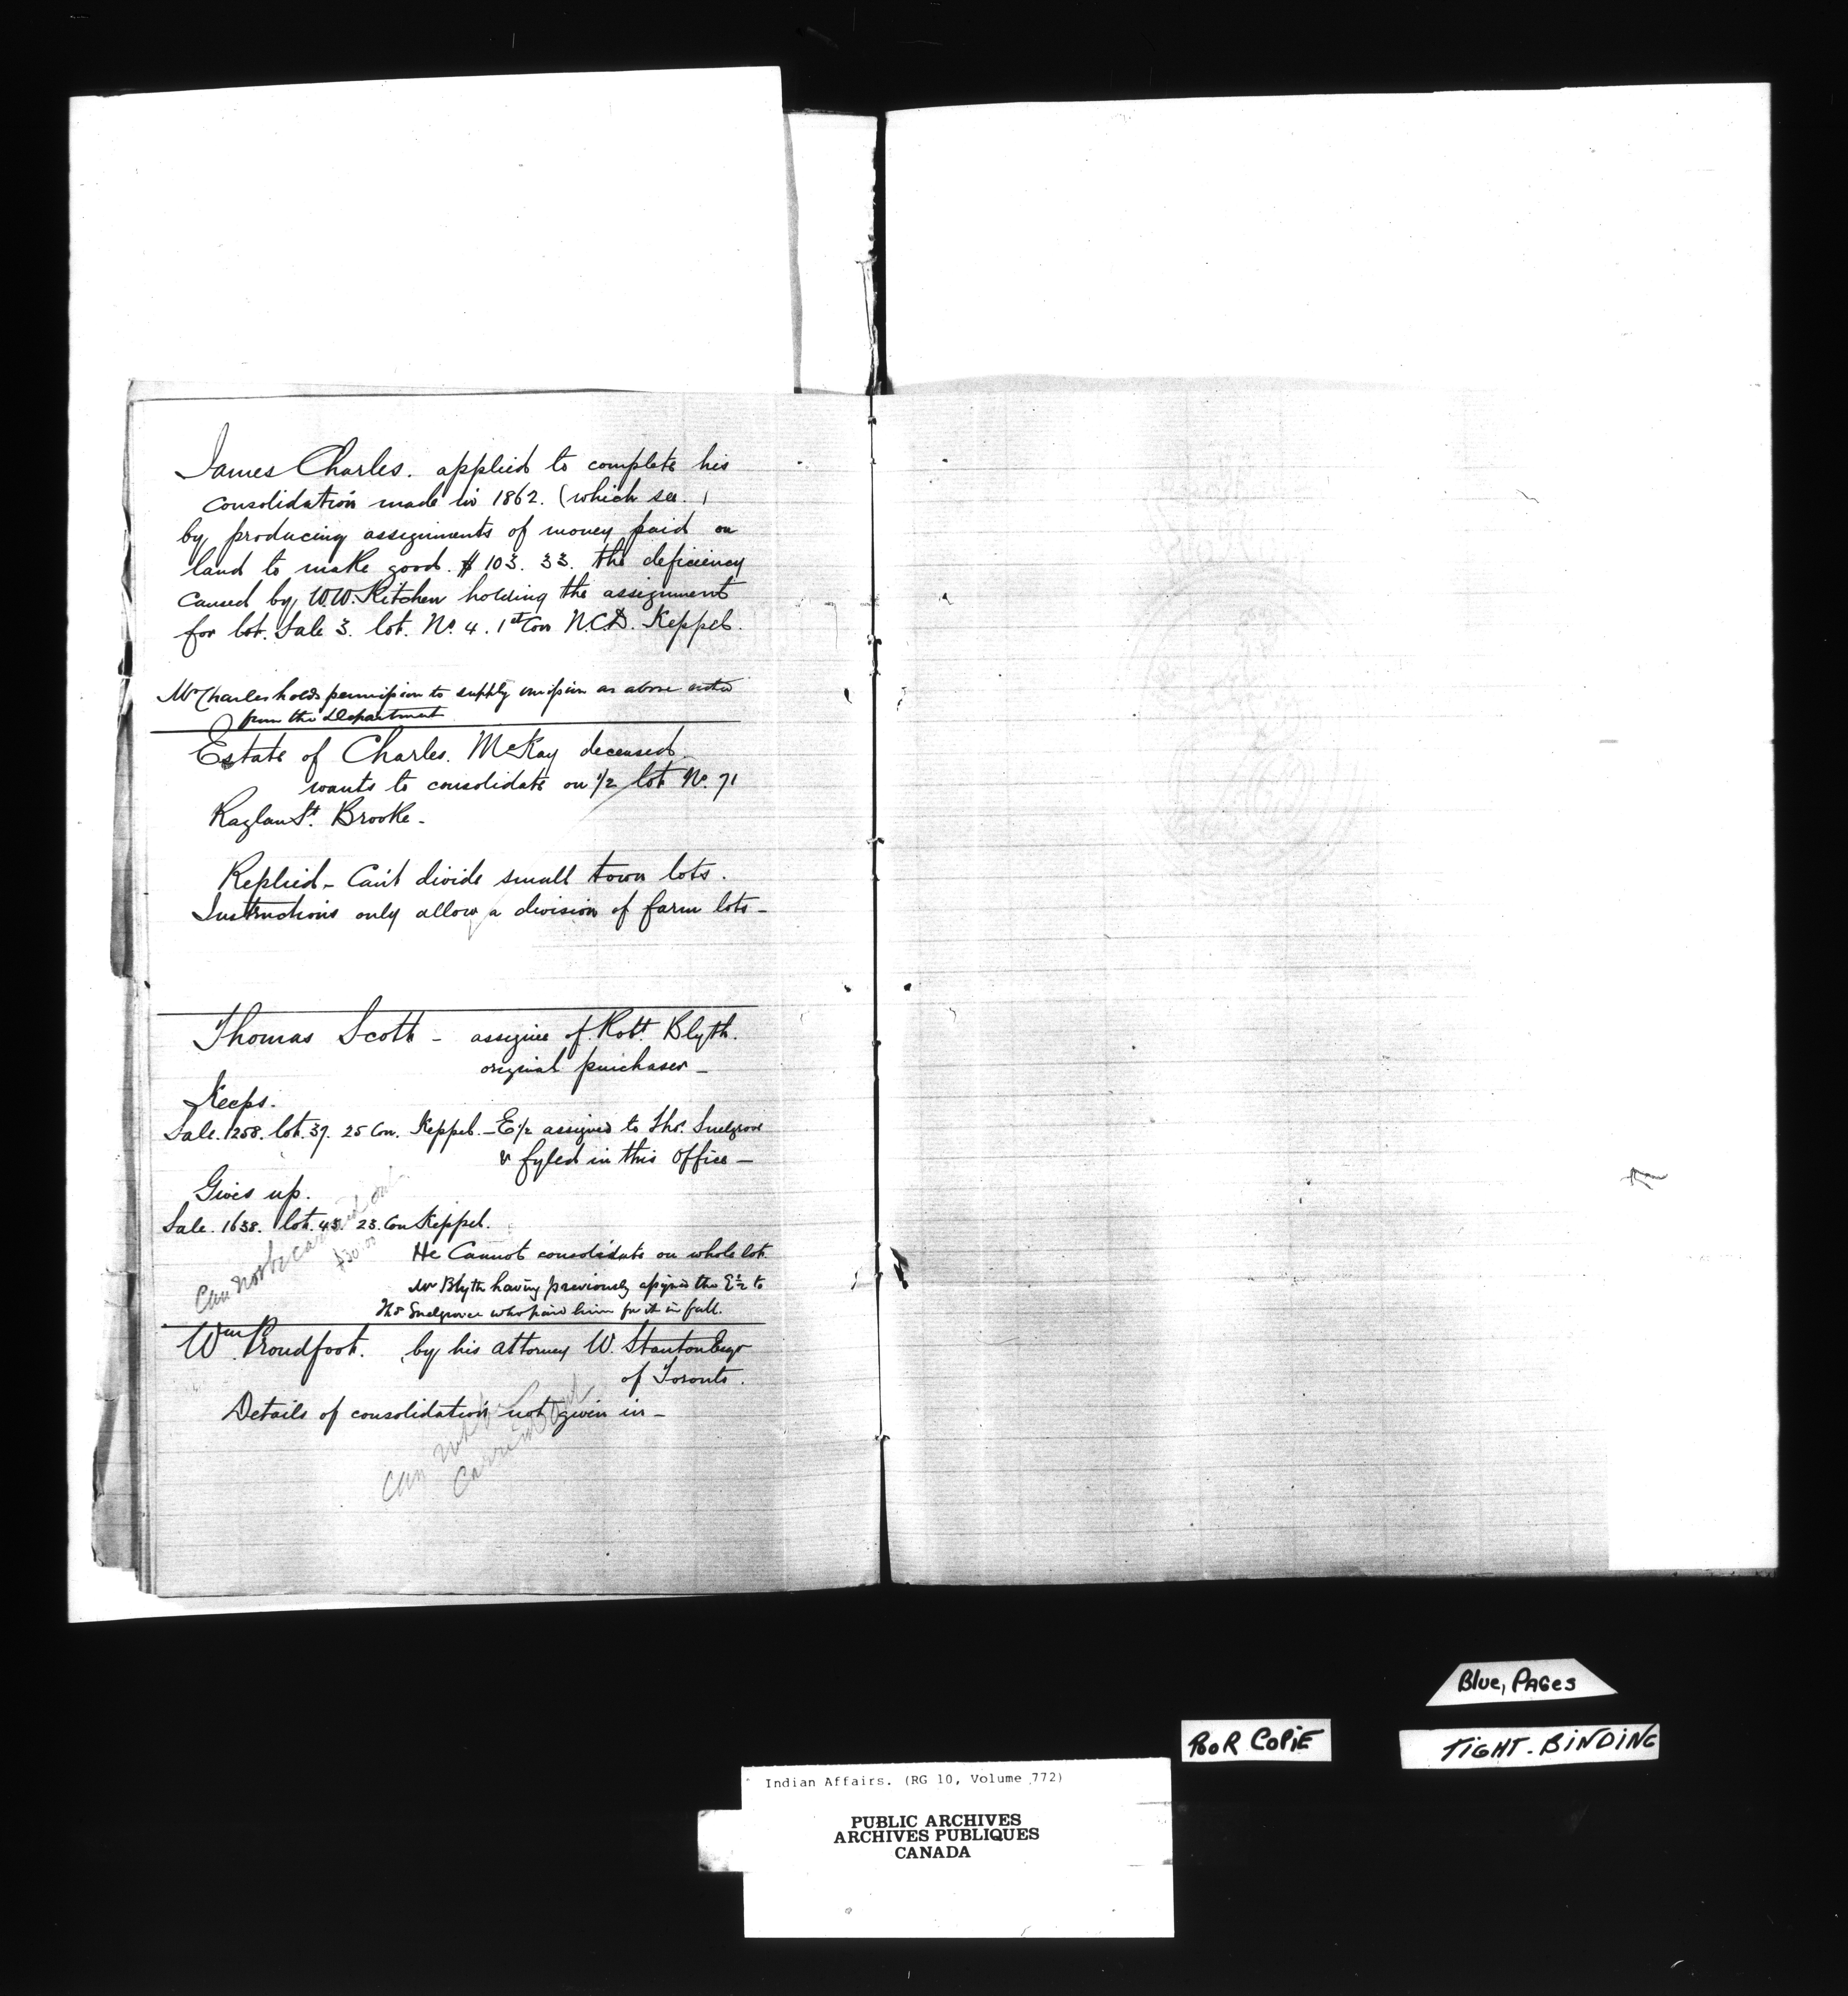 James Charles. applied to complete his
consolidation made in 1862. (which see.)
by producing assignments of money paid on
land to make good. $103.33. the deficiency
caused by W.W. Kitchen holding the assignment
for lot. Sale 3. lot. No. 4. 1st Con N.C.D. Keppel.
Mr Charles holds permission to supply omission as above noted
from the Department
Estate of Charles. McKay deceased
wants to consolidate on 1/2 lot No. 71
Raglan St. Brooke -
Replied - Can't divide small town lots.
Instructions only allow a division of farm lots -
Thomas Scott - assignee of Robt. Blyth.
original purchaser -
Keeps.
Sale. 1258. lot. 37. 25 Con. Keppel. - E 1/2 assigned to Thos. Snelgrove
& fyled in this office -
Gives up.
Sale. 1638. lot. 43. 23. Con Keppel.
Can not be carried out
$30.00
He Cannot consolidate on whole lot
Mr Blyth having previously assigned the E 1/2 to
Thos Snelgrove who paid him for it in full.
Wm. Proudfoot. by his attorney W. Stanton Esqr
of Toronto.
Details of consolidation not given in -
Can not be
Carried out
Blue, PAGES
POOR COPIE
TIGHT. BINDING
Indian Affairs. (RG 10, Volume 772)
PUBLIC ARCHIVES
ARCHIVES PUBLIQUES
CANADA